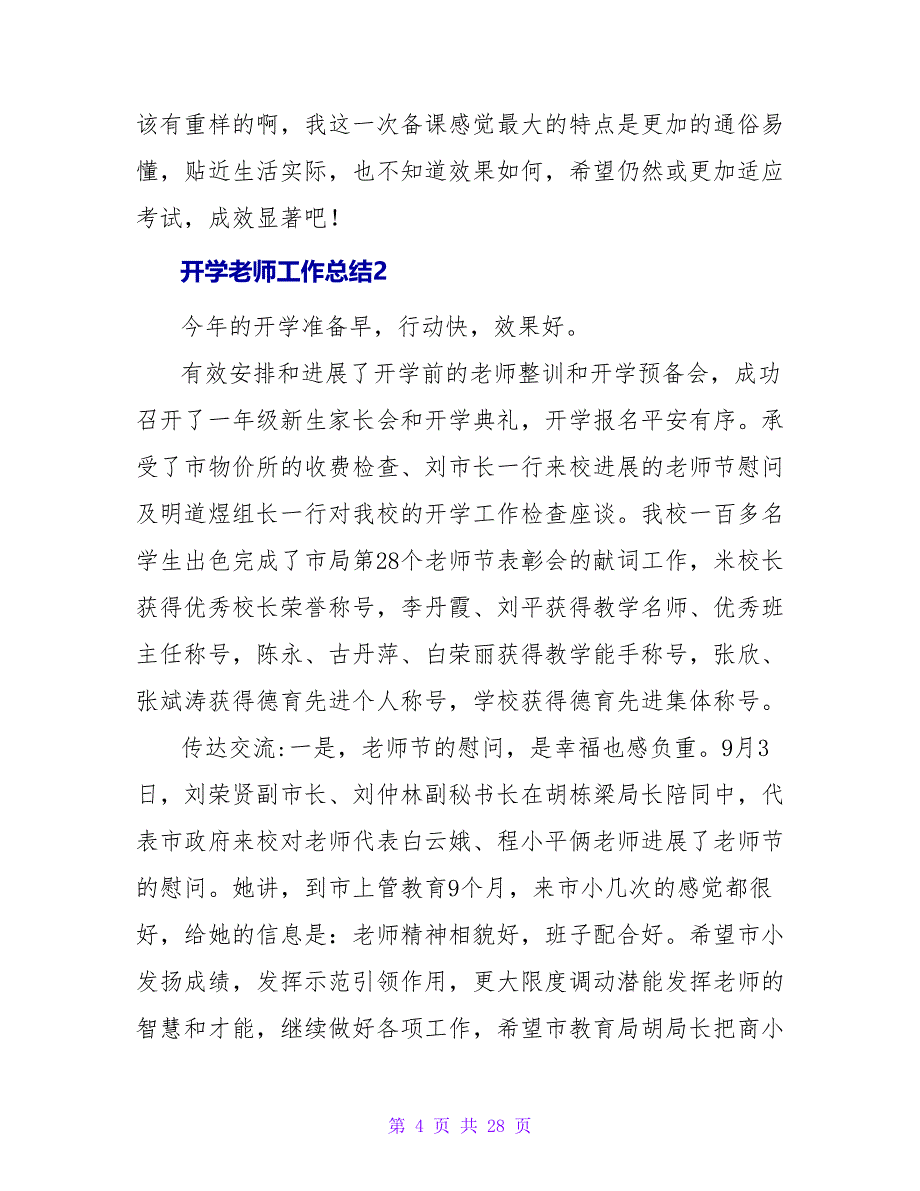 该有重样的啊，我这一次备课感觉最大的特点是更加的通俗易
懂，贴近生活实际，也不知道效果如何，希望仍然或更加适应
考试，成效显著吧！
开学老师工作总结2
今年的开学准备早，行动快，效果好。
有效安排和进展了开学前的老师整训和开学预备会，成功
召开了一年级新生家长会和开学典礼，开学报名平安有序。承
受了市物价所的收费检查、刘市长一行来校进展的老师节慰问
及明道煜组长一行对我校的开学工作检查座谈。我校一百多名
学生出色完成了市局第28个老师节表彰会的献词工作，米校长
获得优秀校长荣誉称号，李丹霞、刘平获得教学名师、优秀班
主任称号，陈永、古丹萍、白荣丽获得教学能手称号，张欣、
张斌涛获得德育先进个人称号，学校获得德育先进集体称号。
传达交流:一是，老师节的慰问，是幸福也感负重。9月3
日，刘荣贤副市长、刘仲林副秘书长在胡栋梁局长陪同中，代
表市政府来校对老师代表白云娥、程小平俩老师进展了老师节
的慰问。她讲，到市上管教育9个月，来市小几次的感觉都很
好，给她的信息是：老师精神相貌好，班子配合好。希望市小
发扬成绩，发挥示范引领作用，更大限度调动潜能发挥老师的
智慧和才能，继续做好各项工作，希望市教育局胡局长把商小
第 4 页 共 28 页